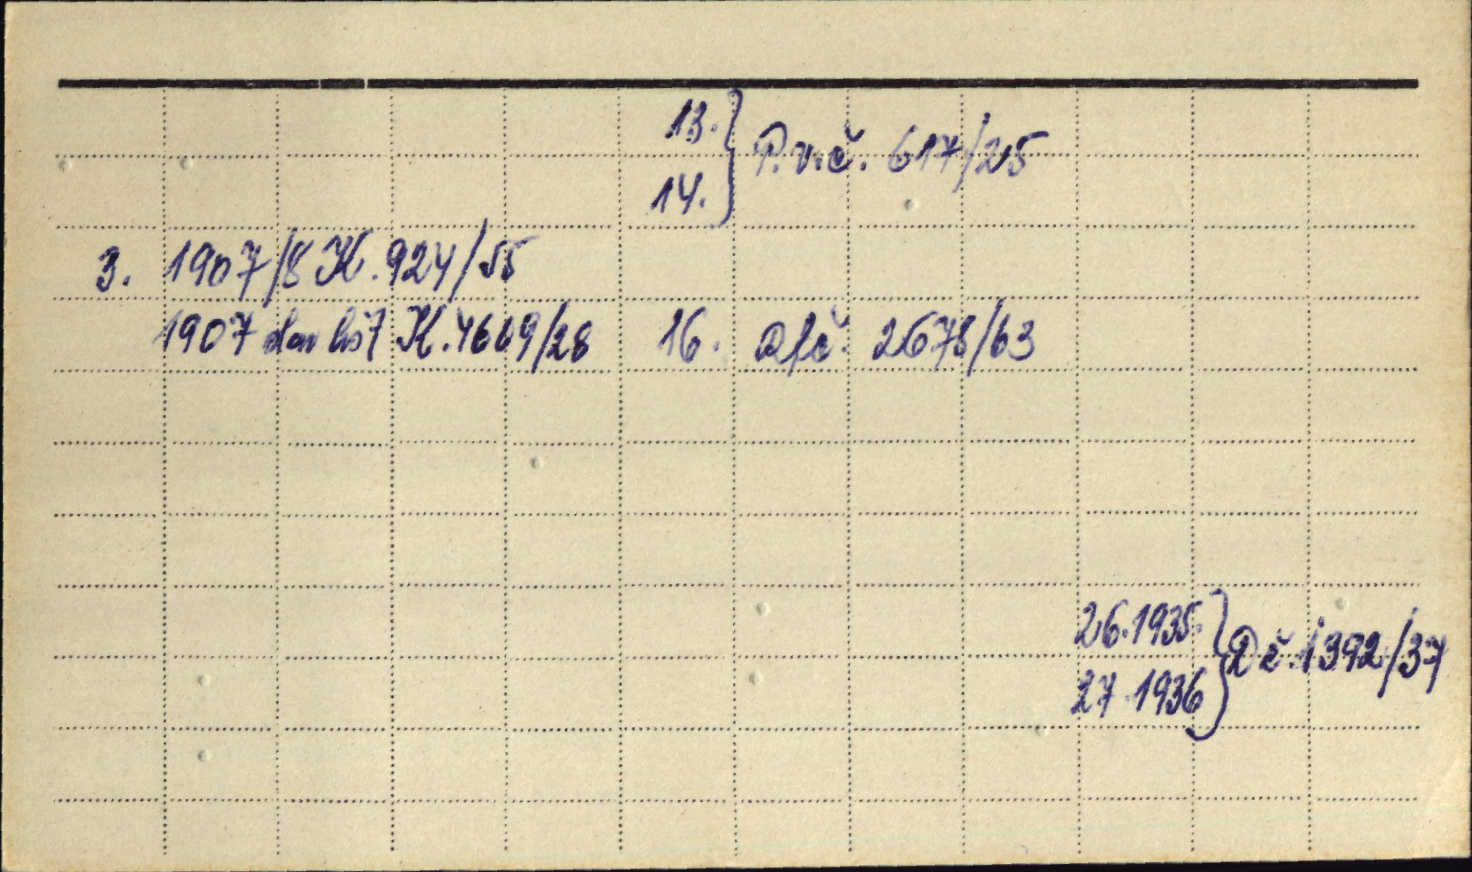 13.
14. } P.v.č. 617/25
3. 1907/8 K. 924/55
1907 K. 4669/28
16. 2678/63
26. 1935.
27. 1936 } D č. 1392/37